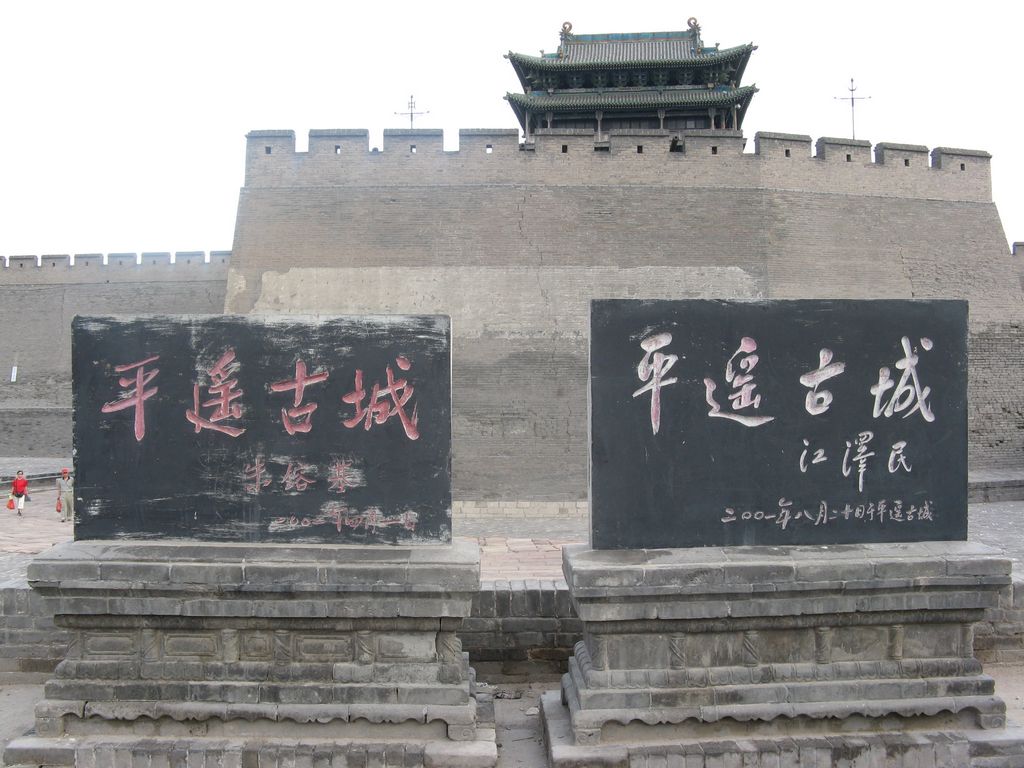 平遥古城
朱镕基
平遥古城
江澤民
二〇〇一年八月二十日于平遥古城